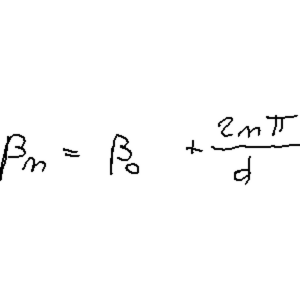 βₙ = β₀ + 2nπ/d